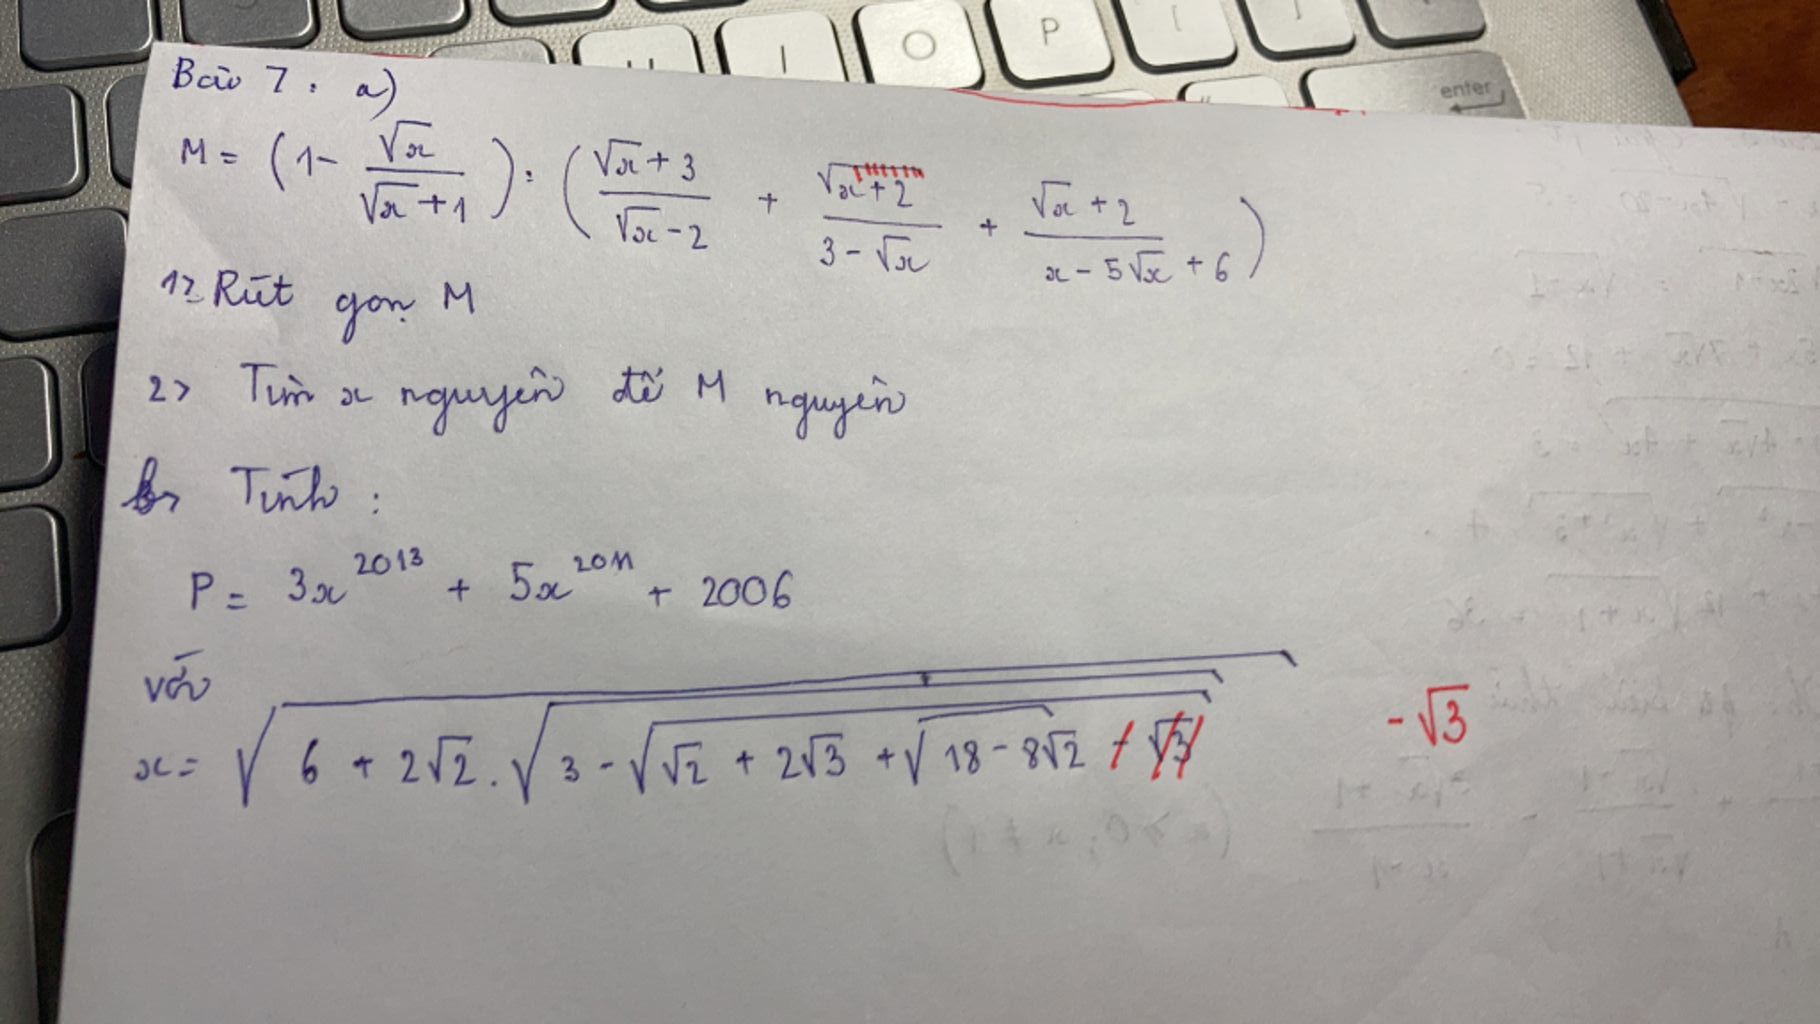 O P [ ]
enter
Bài 7: a)
M = (1 - √x / (√x + 1)) : ((√x + 3) / (√x - 2) + (√x + 2) / (3 - √x) + (√x + 2) / (x - 5√x + 6))
1> Rút gọn M
2> Tìm x nguyên để M nguyên
b> Tính :
P = 3x^2013 + 5x^2011 + 2006
với
x = √(6 + 2√2 . √(3 - √(√2 + 2√3 + √(18 - 8√2)))) - √3